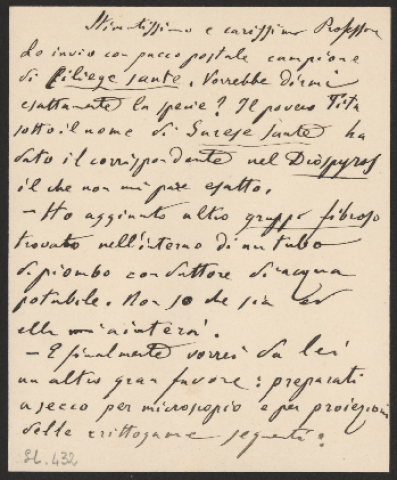 Stimatissimo e carissimo Professore
Le invio con pacco postale campione
di Ciliege sante. Vorrebbe dirmi
esattamente la specie? Il povero Tita
sotto il nome di Sarese sante ha
dato il corrispondente nel Diospyros
il che non mi pare esatto.
– Ho aggiunto altro gruppo fibroso
trovato nell'interno di un tubo
di piombo conduttore di acqua
potabile. Non so che sia ed
ella m'aiuterà.
– E finalmente vorrei da lei
un altro gran favore: preparati
a secco per microscopio e per proiezioni
delle crittogame seguenti:
SL. 432